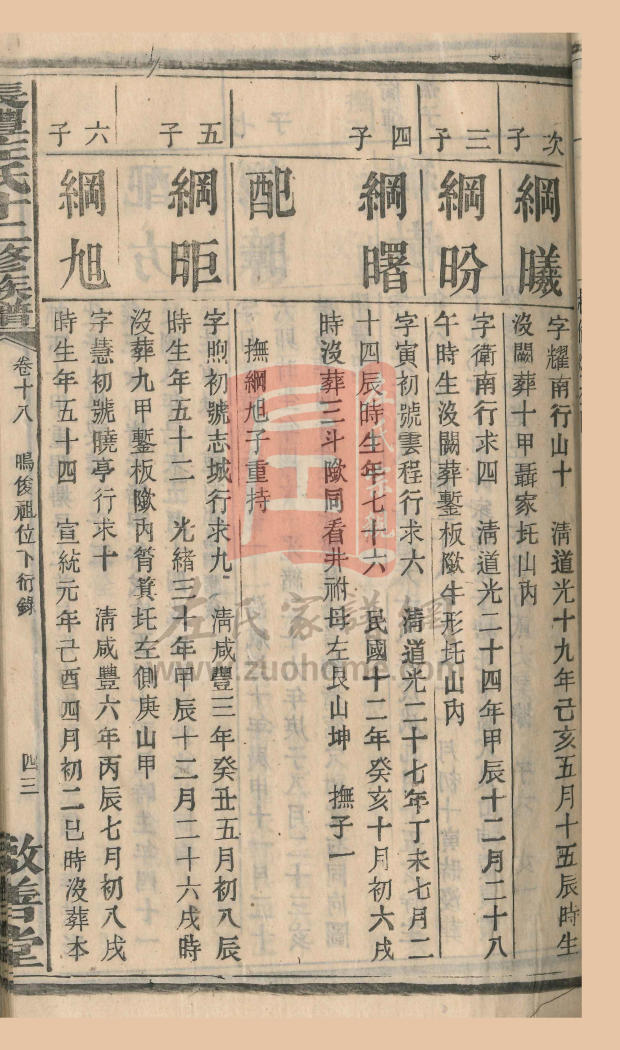 次子
綱曦
字耀南行山十　清道光十九年己亥五月十五辰時生
沒闕葬十甲聶家圫山內
三子
綱昐
字衛南行求四　清道光二十四年甲辰十二月二十八
午時生沒闕葬鏨板㘰牛形圫山內
四子
綱曙
字寅初號雲程行求六　清道光二十七年丁未七月二
十四辰時生年七十六　民國十二年癸亥十月初六戌
時沒葬三斗㘰同看井祔母左艮山坤　撫子一
配
撫綱旭子重持
五子
綱昛
字煦初號志城行求九　清咸豐三年癸丑五月初八辰
時生年五十二　光緒三十年甲辰十二月二十六戌時
沒葬九甲鏨板㘰內筲箕圫左側庚山甲
六子
綱旭
字慧初號曉亭行求十　清咸豐六年丙辰七月初八戌
時生年五十四　宣統元年己酉四月初二巳時沒葬本
長豐左氏十二修族譜
卷十八　鳴俊祖位下衍錄　四三
啟善堂
左氏家譜網
www.zuohome.com